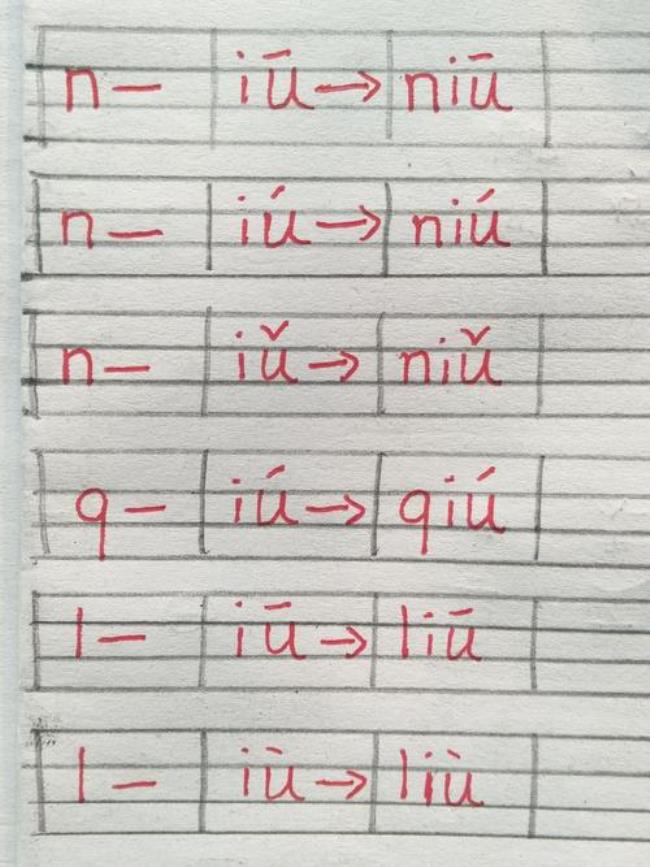 n— iū→ niū
n— iú→ niú
n— iǔ→ niǔ
q— iú→ qiú
l— iū→ liū
l— iù→ liù